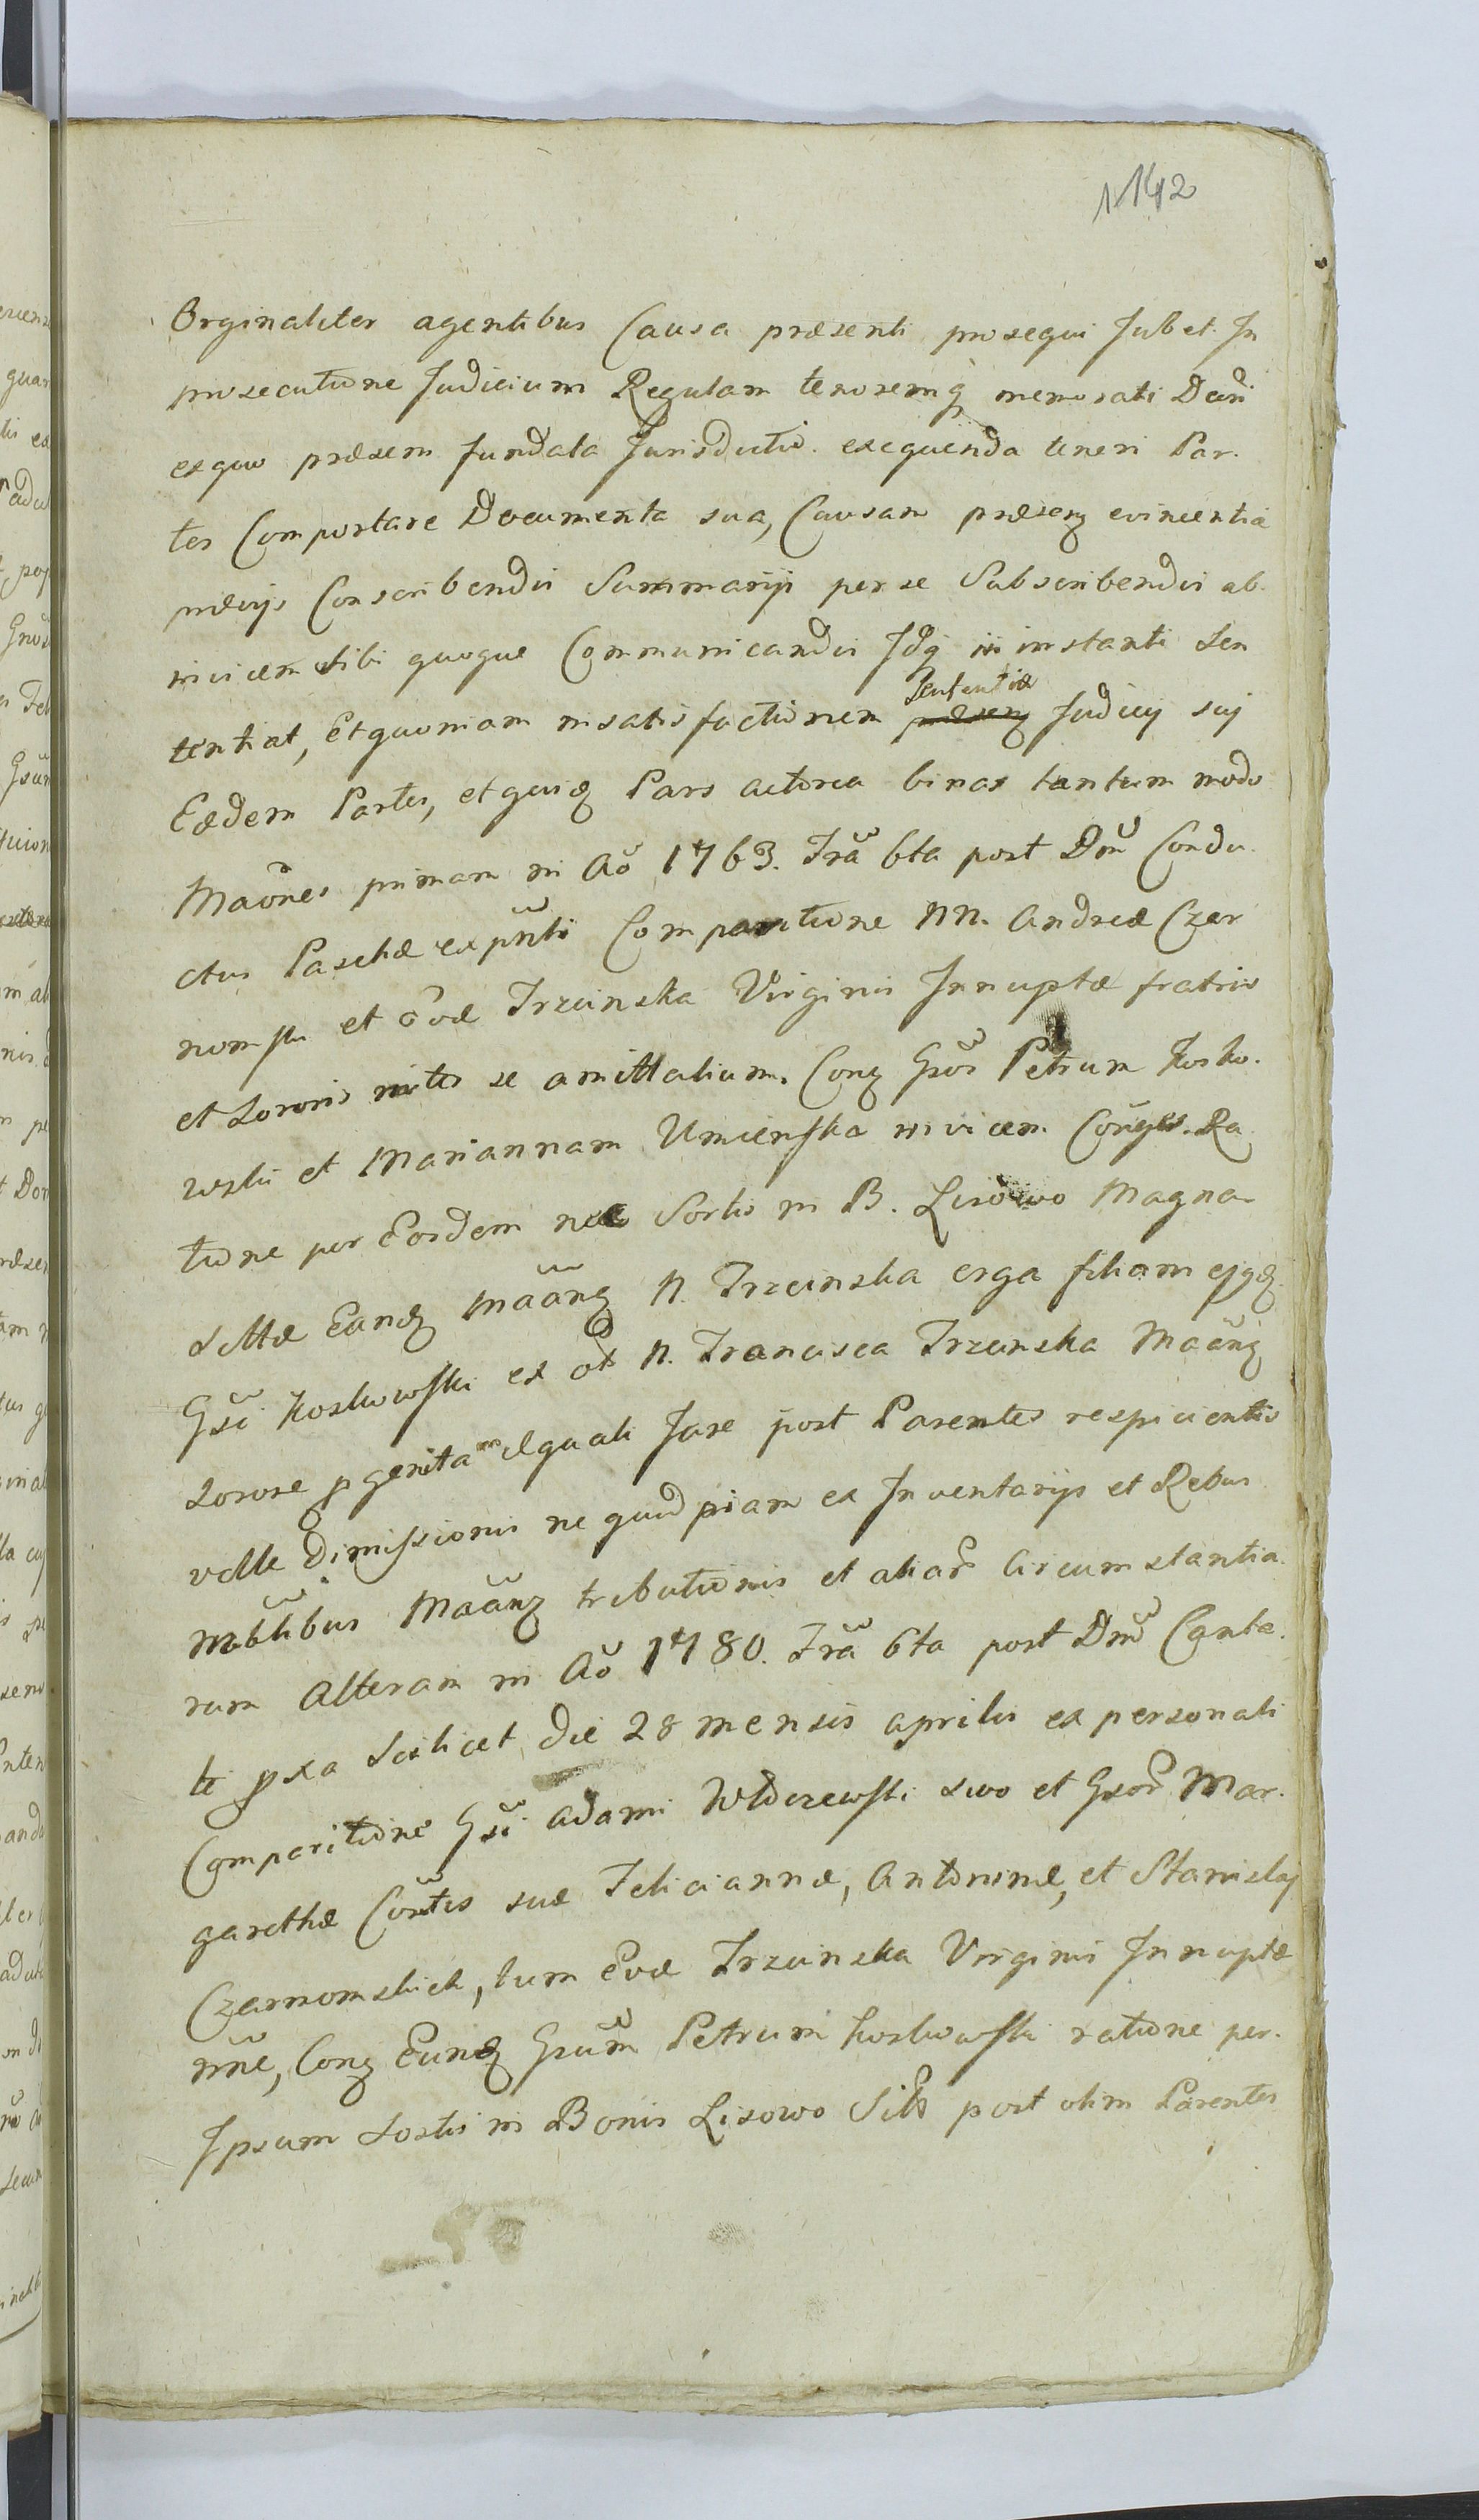 1142
Orginaliter agentibus Causa præsenti prosequi Jubet. In
prosecutione Judicium Regulam tenoremq memorati Decri
exquo præsem fundata Jurisdictio. exequenda teneri Par.
tes Comportare Documenta sua, Causam præsenz evincentia
prævijs Conscribendis Summarijs per se Subscribendis ab.
invicem sibi quoque Communicandis Idq in instanti Sen
tentiat, Et quoniam in satisfactionem Sententiæ Judicij sui
Eædem Partes, et quidz Pars actorea binas tantum modo
Maõnes primam in Aõ 1763. Frã 6ta post Dm̃ Condu.
ctus Paschæ ex pñti Comparitione NN. Andreæ Czar
nomski et Evæ Trzcinska Virginis Innuptæ fratris
et Sororis inter se amittalium. Conz Gsõs Petrum Kosko.
wski et Mariannam Umienska invicem Coñges. Ra
tione per Eosdem Sortis in B. Lisowo Magna
dictæ Eandz Mãanz N. Trzcinska erga filiam ejqz
Gsĩ Koskowski ex N. Francisca Trzcinska Mãanz
Sorore pgenitam Equali Jure post Parentes respicientis
velle Dimissionis ne quidpiam ex Inventarijs et Rebus
Mõblibus Mãanz tributionis et aliar Circumstantia.
rum Alteram in Aõ 1780. Frã 6ta post Dm̃ Canta.
te pxa Scilicet die 28 mensis aprilis ex personali
Comparitione Gsĩ Adami Wlderewski suo et Gsor Mar.
garethæ Cõntes suæ Feliciannæ, Antoninæ, et Stanislaj
Czarnomskich, tum Evæ Trzcinska Virginis Innuptæ
nñe, Conz Eundz Gsũm Petrum Koskowski ratione per.
Ipsum Sortis in Bonis Lisowo Sibi post olim Parentes